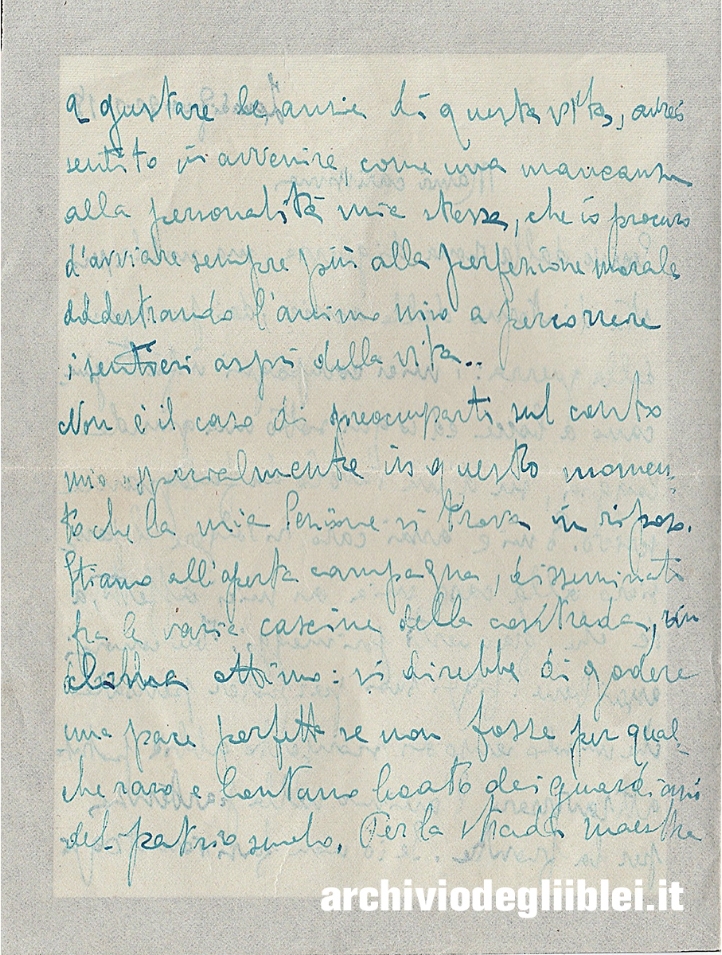 a gustare le ansie di questa vita, avrei
sentito in avvenire, come una mancanza
alla personalità mia stessa, che io procuro
d'avviare sempre più alla perfezione morale
addestrando l'animo mio a percorrere
i sentieri aspri della vita..
Non è il caso di preoccuparti sul conto
mio specialmente in questo momen-
to che la mia Sezione si trova in riposo.
Stiamo all'aperta campagna, disseminati
fra le varie cascine della contrada, in
ottimo: si direbbe di godere
una pace perfetta se non fosse per qual-
che raro e lontano boato dei guardiani
del patrio suolo. Per la strada maestra
archiviodegliiblei.it